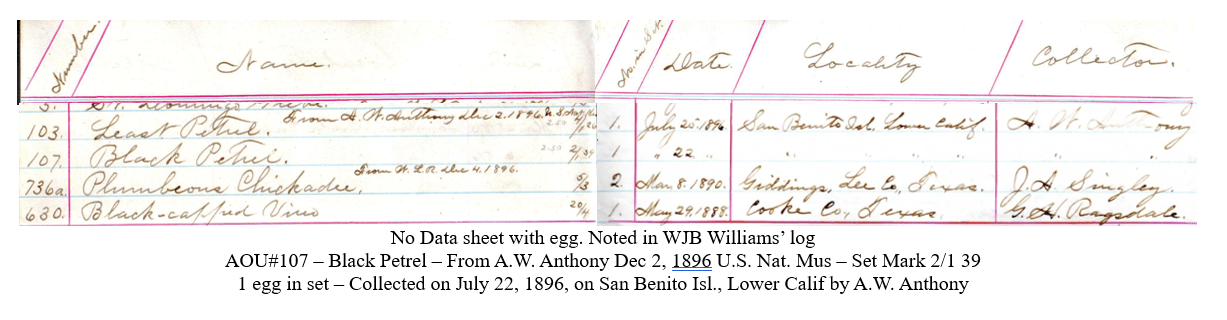 Number. Name. No. in Set. Date. Locality Collector.
From A. W. Anthony Dec 2. 1896.
103. Least Petrel. 1. July 25. 1896 San Benito Isl. Lower Calif. A. W. Anthony
107. Black Petrel. 2.50 2/1 39 1 " 22 " " " " " " "
From W. L. R. Dec 4. 1896.
736a. Plumbeous Chickadee. 5/3 2. Mar. 8. 1890. Giddings, Lee Co, Texas. J. A. Singley.
630. Black-capped Vireo 20/4 1. May 29. 1888. Cooke Co., Texas G. H. Ragsdale.
No Data sheet with egg. Noted in WJB Williams’ log
AOU#107 – Black Petrel – From A.W. Anthony Dec 2, 1896 U.S. Nat. Mus – Set Mark 2/1 39
1 egg in set – Collected on July 22, 1896, on San Benito Isl., Lower Calif by A.W. Anthony